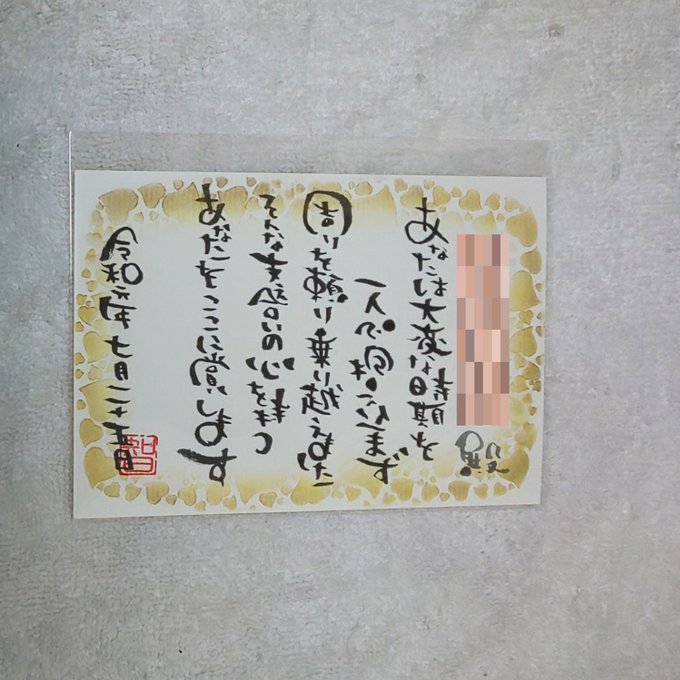 殿
あなたは大変な時期を
一人で抱えこまず
周りを頼り乗り越えました
そんな支え合いの心を持つ
あなたをここに賞します
令和元年七月二十五日